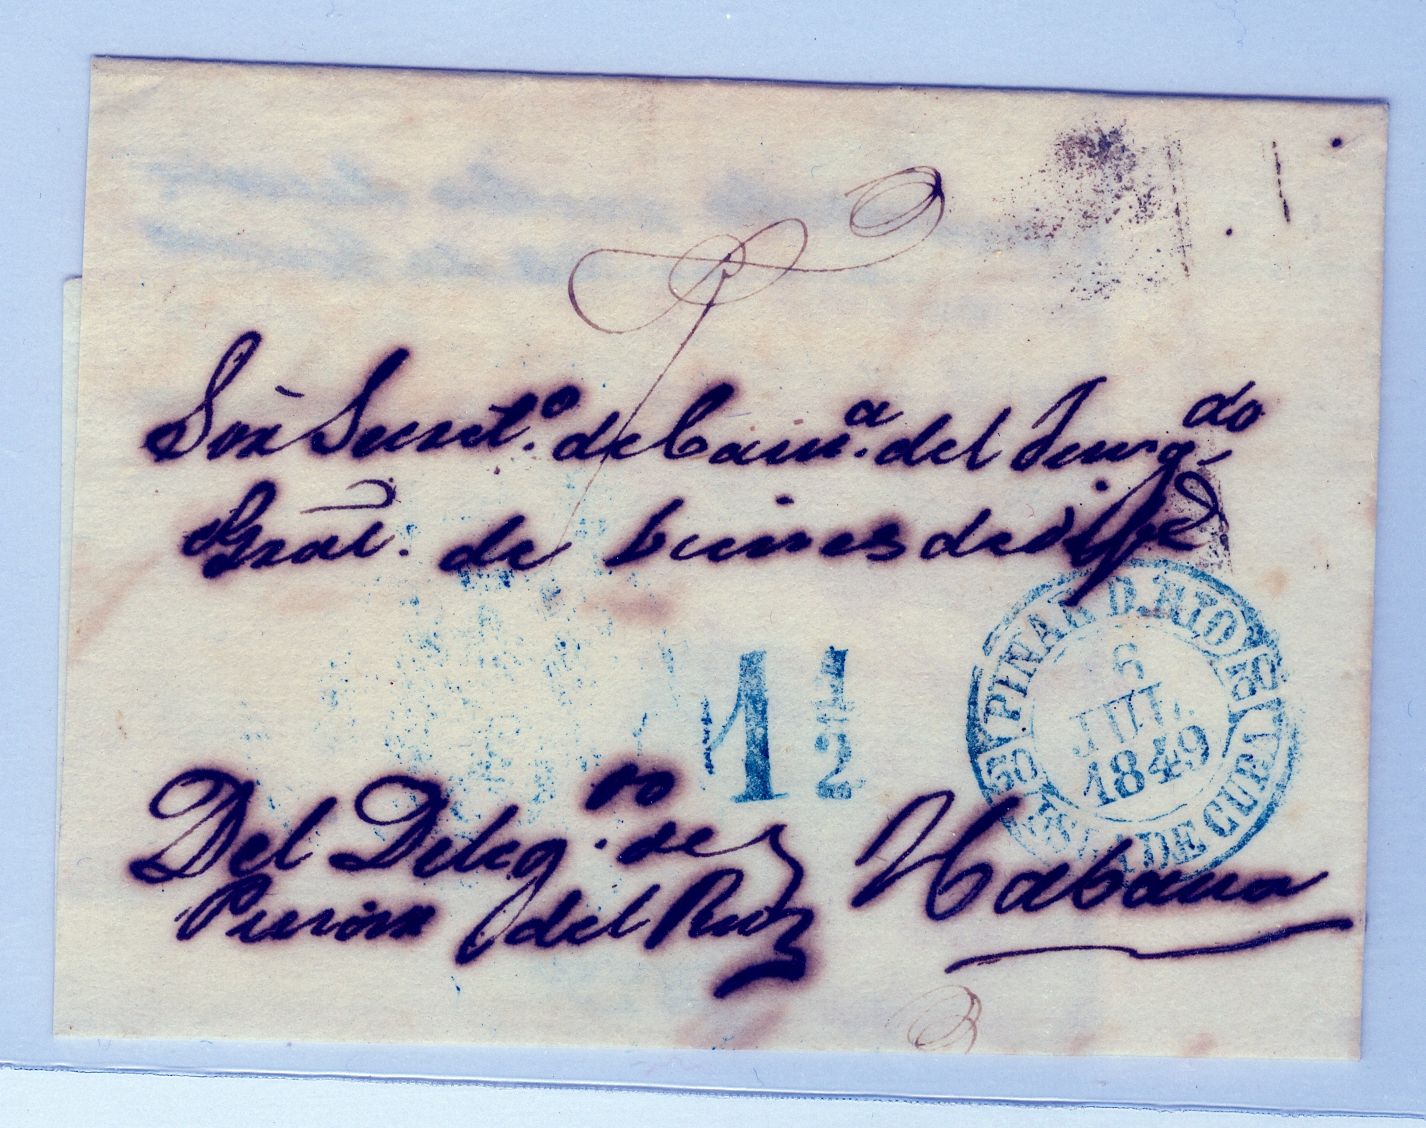 Sor Secret.o de Cam.a del Juzg.do
Gral. de bienes de dif.s
1 1/2
PINAR D. RIO
6
JUL.
1849
ISLA DE CUBA
Del Deleg.do de
Pinar del Rio
Habana